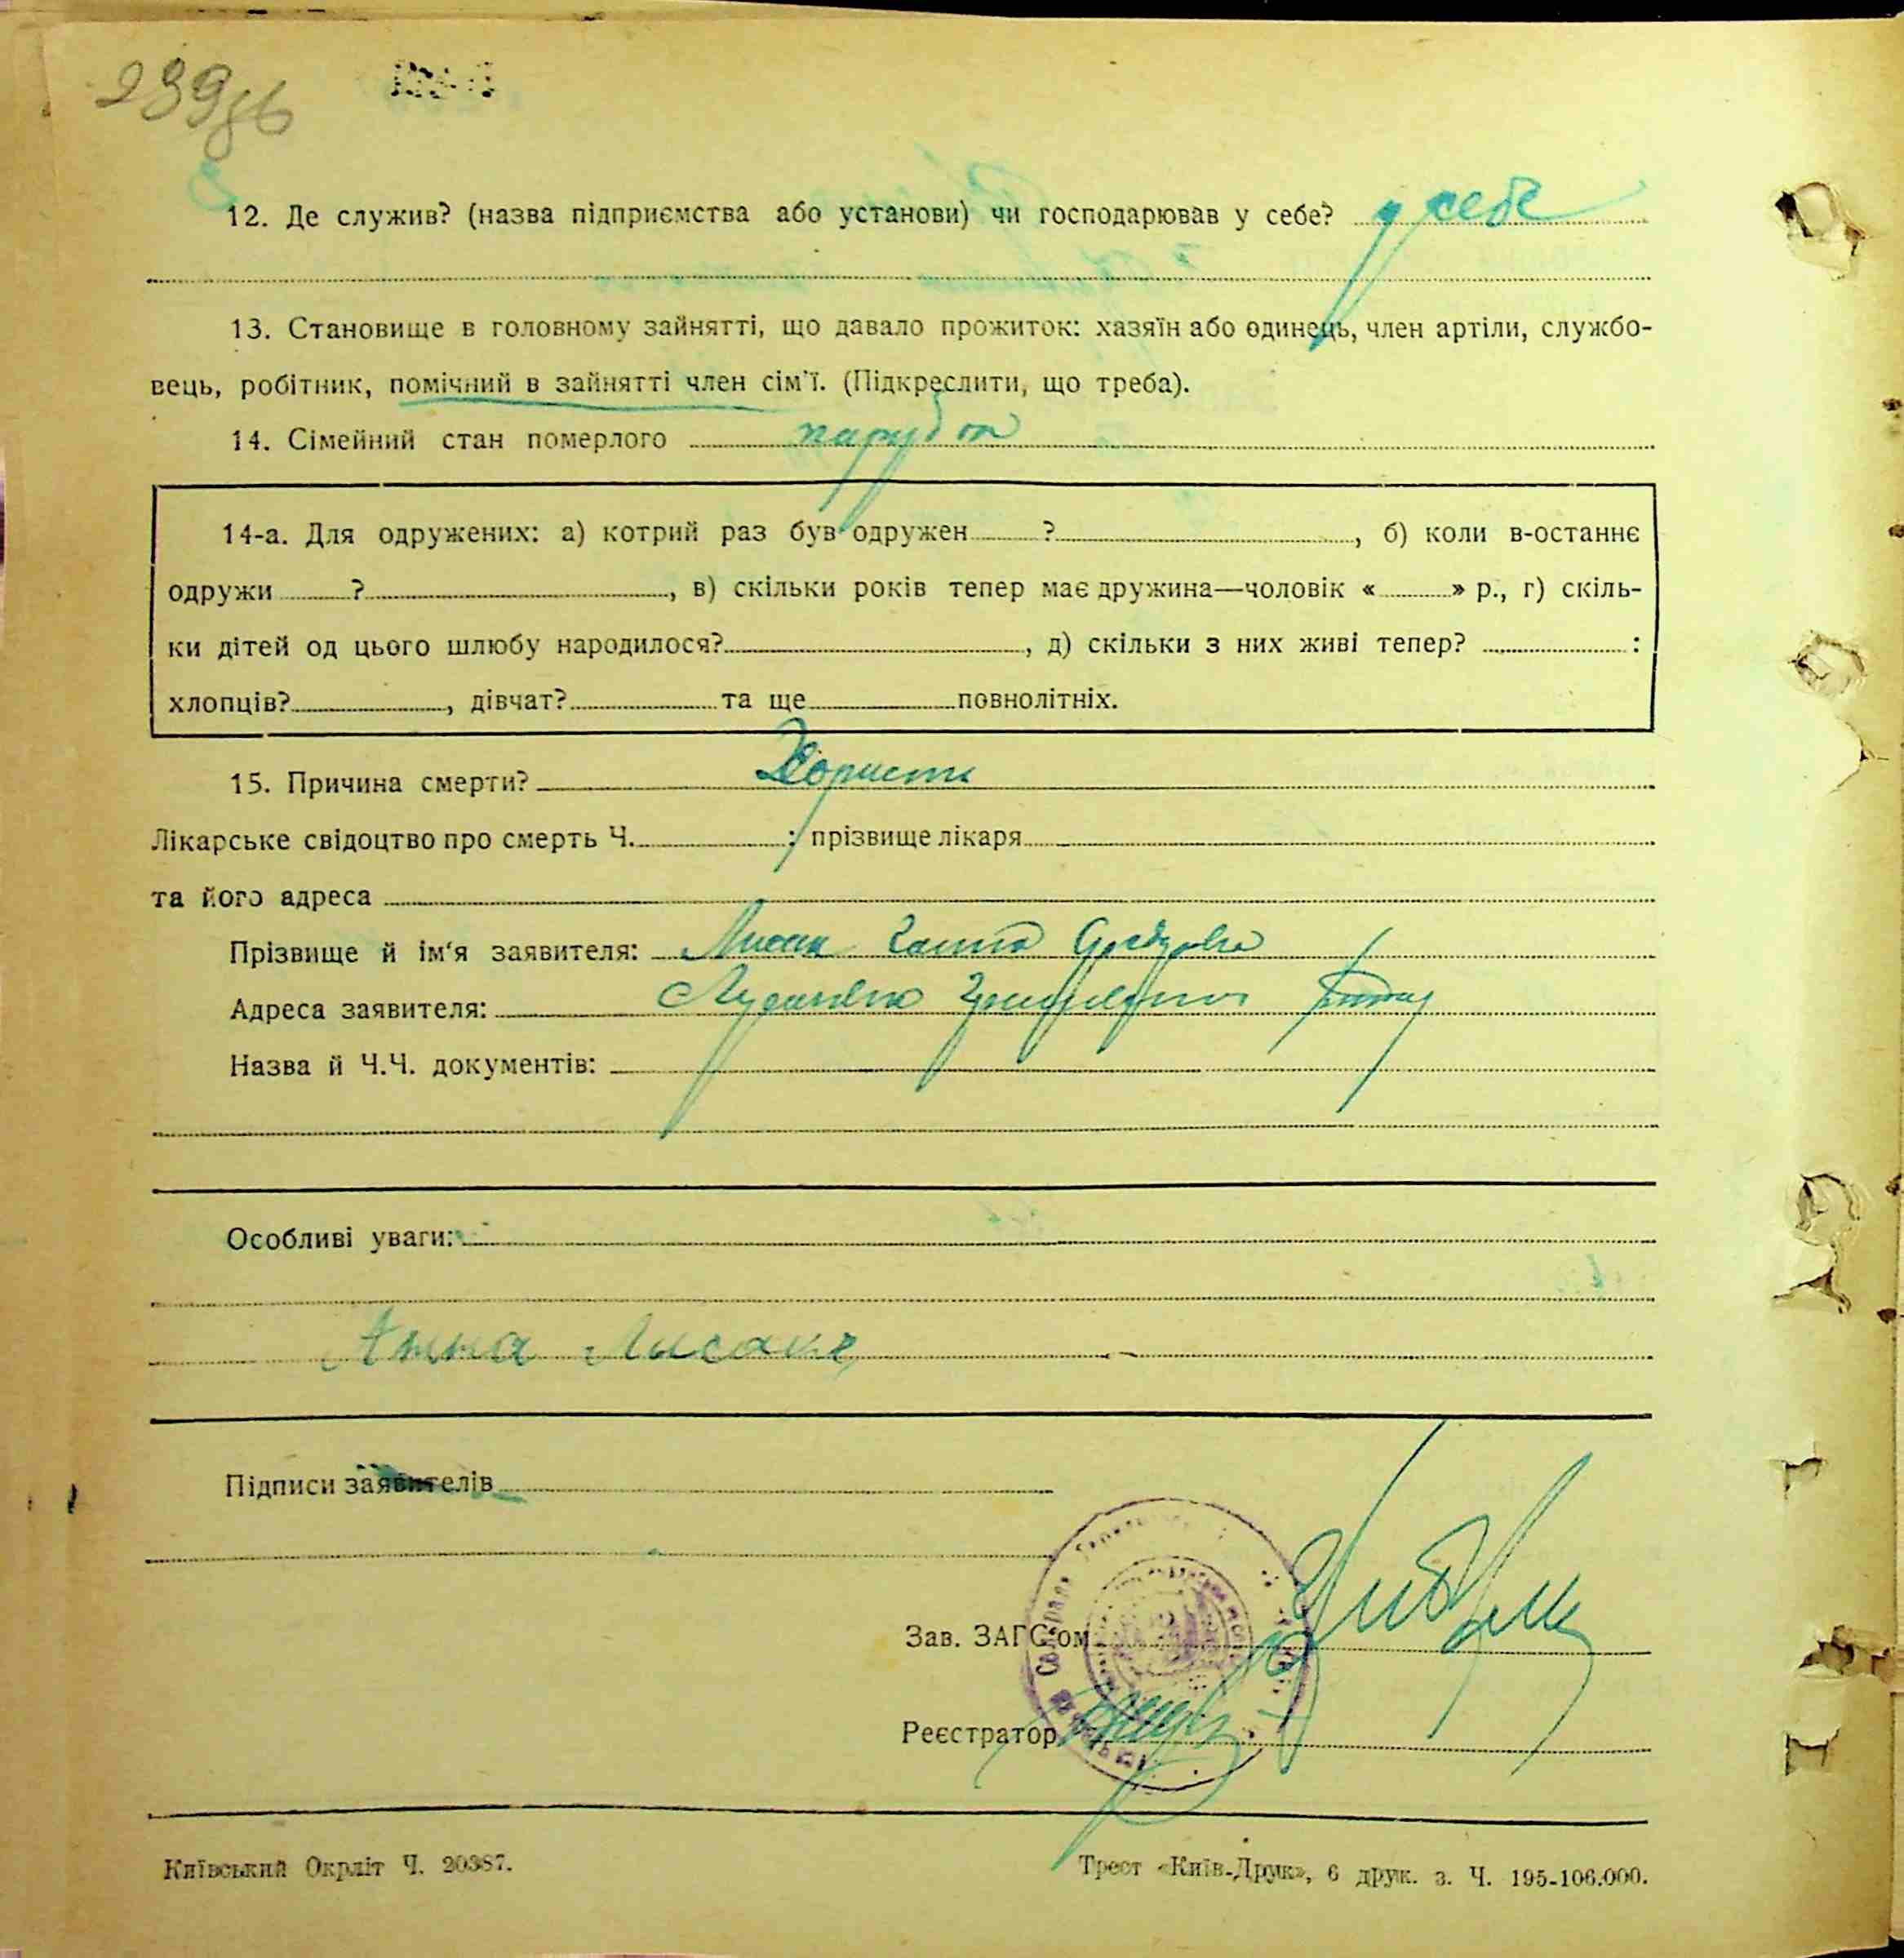 239зв
12. Де служив? (назва підприємства або установи) чи господарював у себе? у себе
13. Становище в головному зайнятті, що давало прожиток: хазяїн або одинець, член артіли, службо-
вець, робітник, помічний в зайнятті член сім'ї. (Підкреслити, що треба).
14. Сімейний стан померлого парубок
14-а. Для одружених: а) котрий раз був одружен ? , б) коли в-останнє
одружи ? , в) скільки років тепер має дружина—чоловік « » р., г) скіль-
ки дітей од цього шлюбу народилося? , д) скільки з них живі тепер? :
хлопців? , дівчат? та ще повнолітніх.
15. Причина смерти?
Лікарське свідоцтво про смерть Ч. ; прізвище лікаря
та його адреса
Прізвище й ім'я заявителя: Лисак Ганна
Адреса заявителя:
Назва й Ч.Ч. документів:
Особливі уваги:
Анна Лисака
Підписи заявителів
Зав. ЗАГС'ом
Реєстратор
Київський Окрліт Ч. 20387.
Трест «Київ-Друк», 6 друк. з. Ч. 195-106.000.